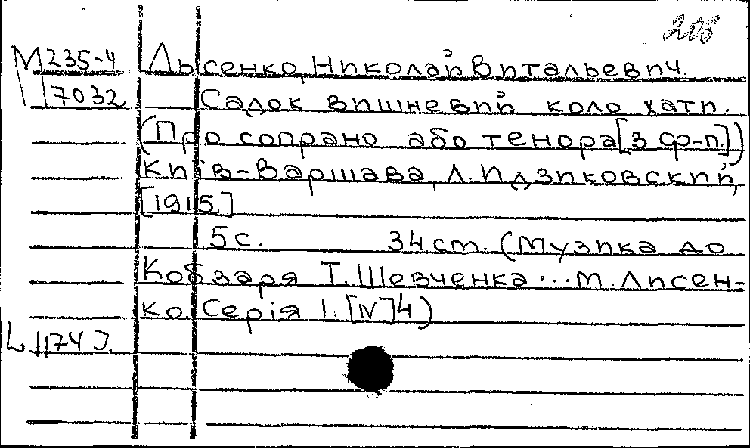 208
М 235-4 Лысенко, Николай Витальевич.
17032 Садок вишневий коло хати.
(Про сопрано або тенора [з ф-п.])
Київ-Варшава, Л. Идзиковский,
[1915]
5 с. 34 cm. (Музика до
Кобзаря Т. Шевченка... М. Лисен-
ко. Серія I. [IV] 4)